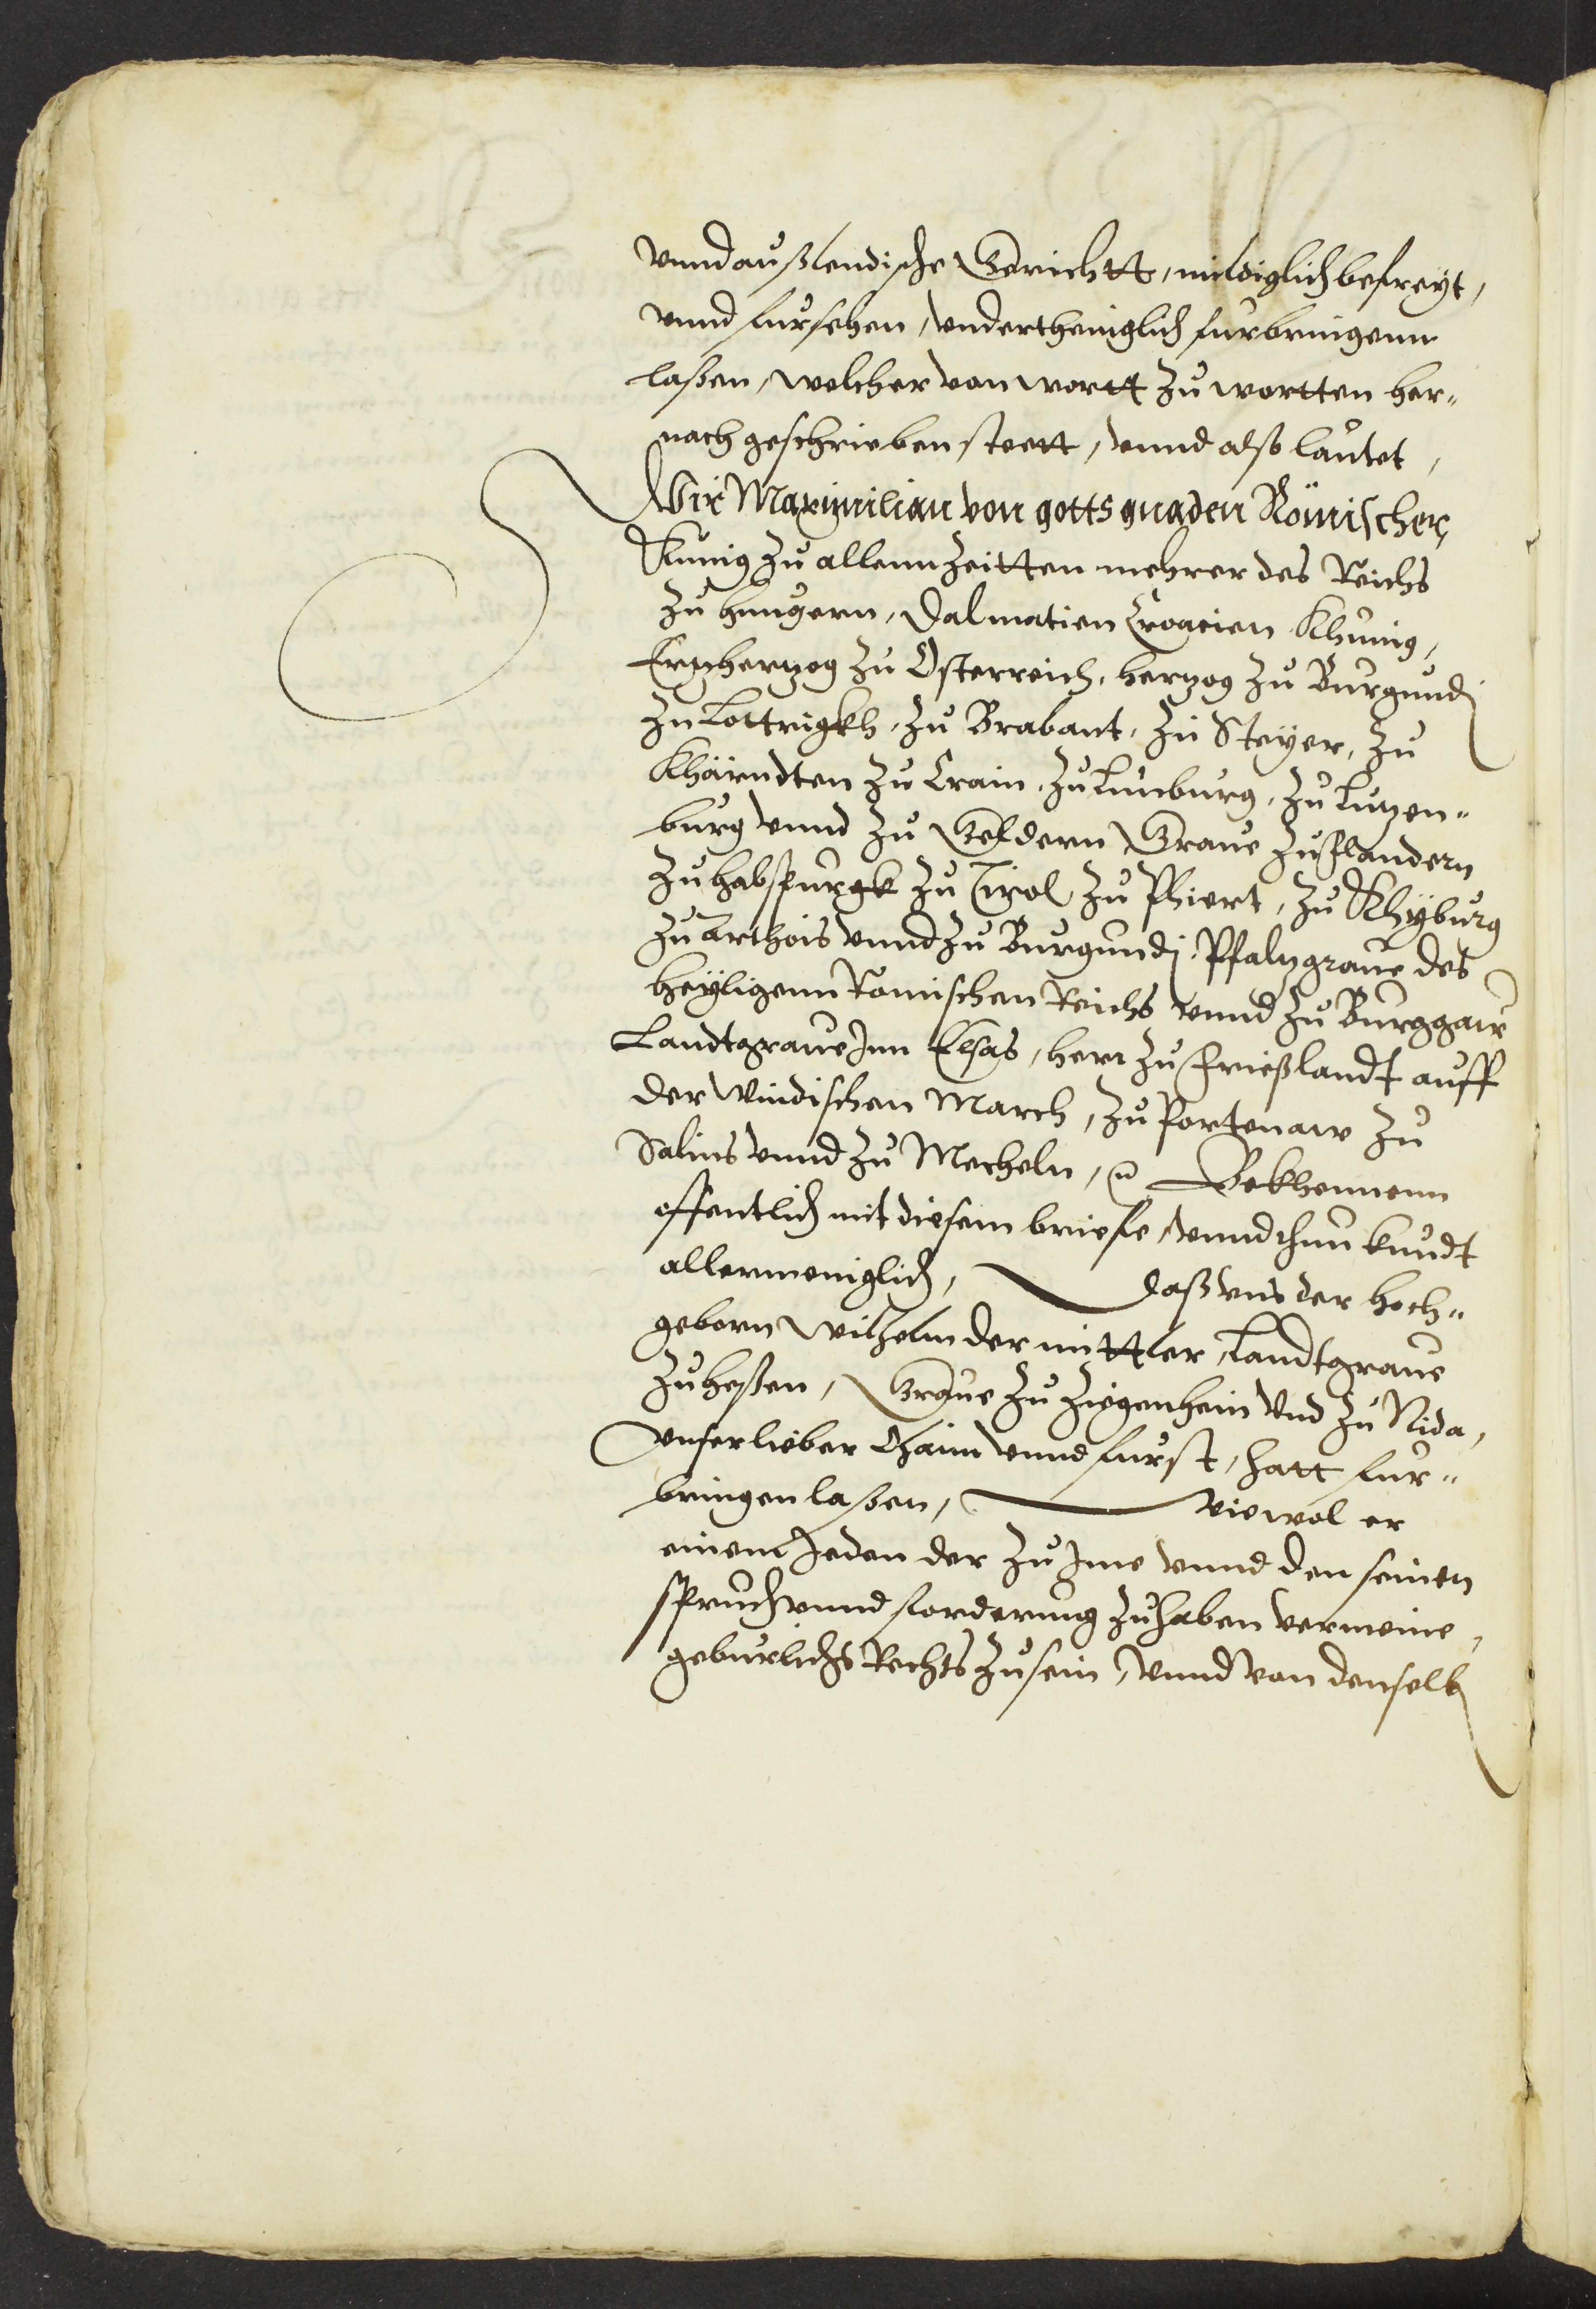 vnnd außlendische Gerichtt, mildiglich befreyt,
vnnd fursehen, vnderthenigklich furbringenn
laßen, welcher von wortt zu wortten her„
nach geschrieben steett, vnnd also lautet,
Wir Maximilian von gotts gnaden Römischer,
Kunig zu allenn Zeitten mehrer des Reichs
zu hungern, Dalmatien Croacien Khunig,
Ertzhertzog zu Osterreich, hertzog zu Burgundj
zu Lottrigkh, zu Brabant, zu Steyer, zu
Khärndten zu Crain, zu Limburg, zu Lutzen„
burg vnnd zu Geldern Graue zu Flandern
zu habspurgk zu Tirol zu Phiert, zu Khyburg
zu Arthois vnnd zu Burgundj, Pfaltzgraue des
heyligenn Romischen Reichs vnnd zu Burggaw
Landtgraue Jnn Elsas, herr zu Frießlandt auff
der windischen March, zu Portenaw zu
Salins vnnd zu Mecheln, Bekhennenn
offentlich mit diesem briefe, vnnd thun kundt
allermeniglich, daß vns der hoch„
geborn Wilhelm der mittler, Landtgraue
zu heßen, Graue zu Ziegenhein vnd zu Nida,
vnser lieber Ohaim vnnd furst, hatt fur„
bringen laßen, wiewol er
einem Jeden der zu Jme vnnd den seinen
spruch vnnd forderung zu haben vermeine,
geburlichs Rechts zu sein, vnnd von denselb